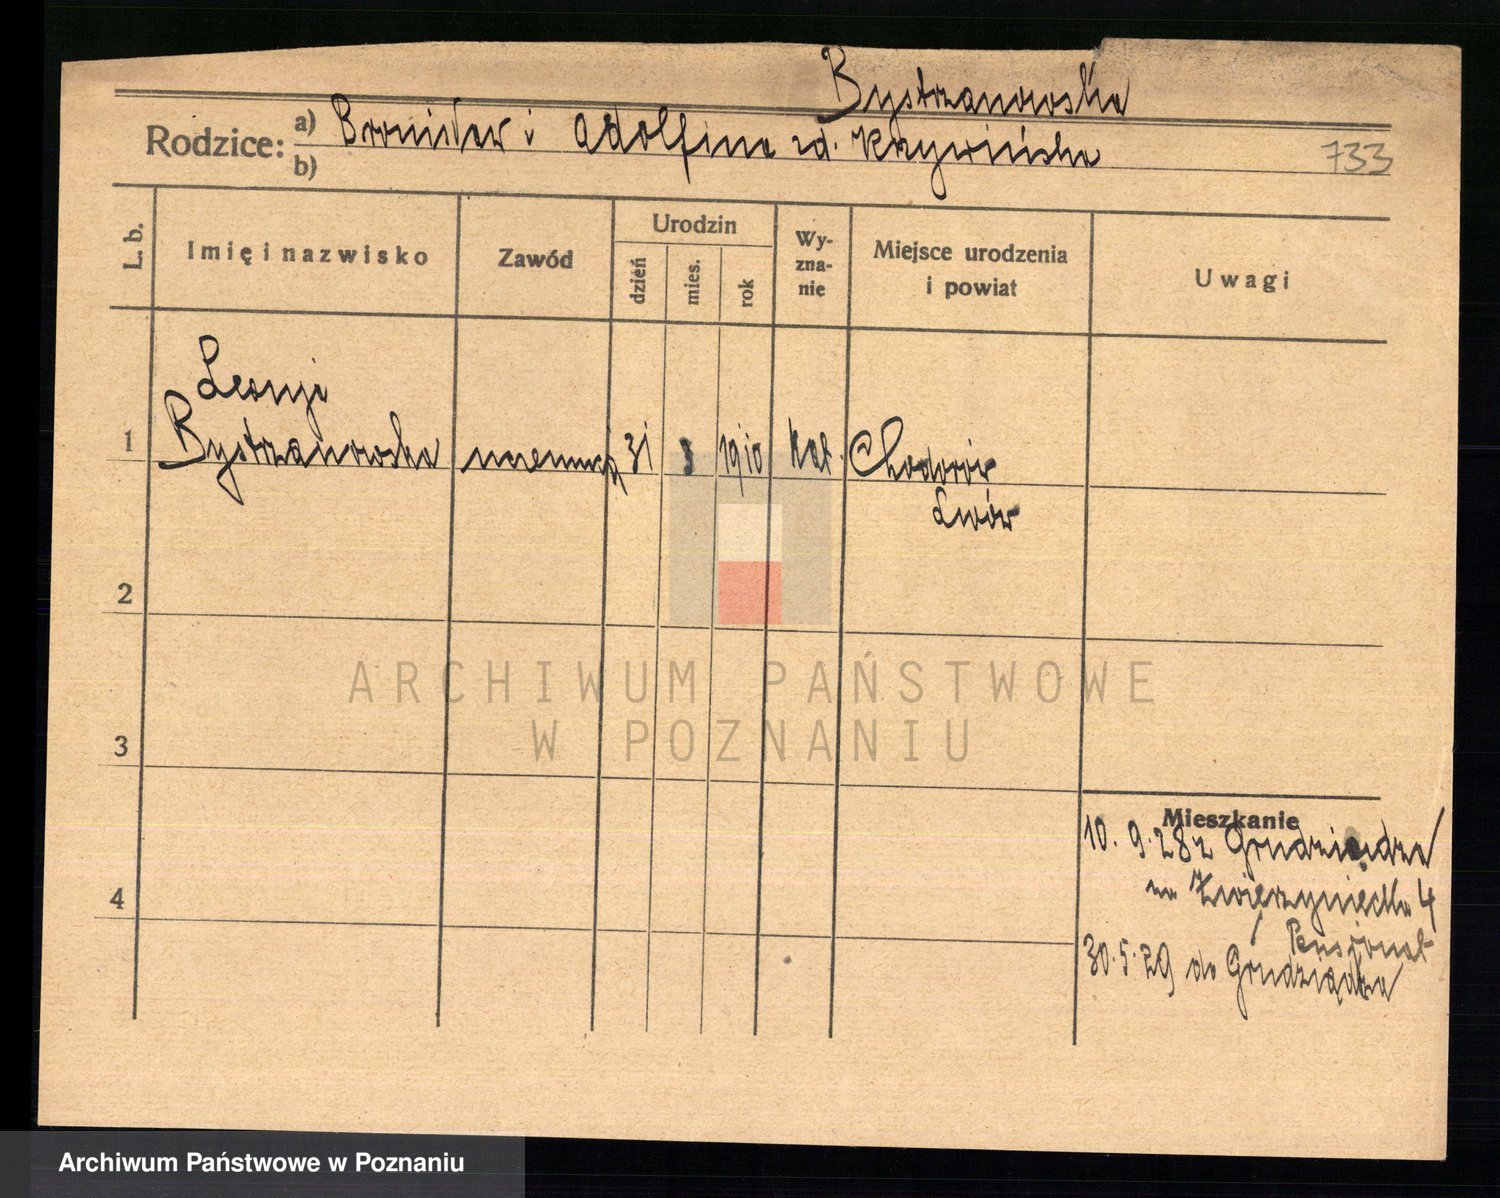 Bystrzanowska
Rodzice: a) Bronisław i Adolfina zd. Krzywińska
b)
733
L. b.
Imię i nazwisko
Zawód
Urodzin
dzień
mies.
rok
Wy-
zna-
nie
Miejsce urodzenia
i powiat
Uwagi
1
Leonja
Bystrzanowska
31
3
1910
kat.
Chodorów
Lwów
2
3
4
Mieszkanie
10. 9. 28 z Grudziądza
na Zwierzyniecka 4
Pensjonat
30. 5. 29 do Grudziądza
ARCHIWUM PAŃSTWOWE
W POZNANIU
Archiwum Państwowe w Poznaniu